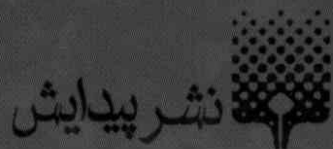 نشر پیدایش